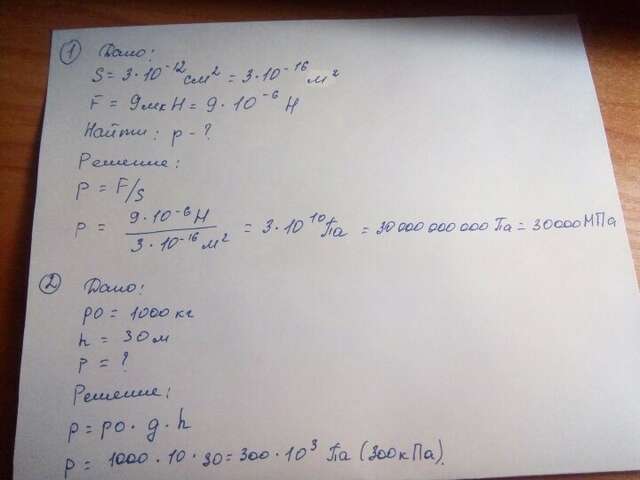 ① Дано:
S = 3·10⁻¹² см² = 3·10⁻¹⁶ м²
F = 9мкН = 9·10⁻⁶ Н
Найти: p - ?
Решение:
p = F/S
p = 9·10⁻⁶Н / 3·10⁻¹⁶м² = 3·10¹⁰Па = 30 000 000 000 Па = 30000 МПа
② Дано:
ро = 1000 кг
h = 30 м
p = ?
Решение:
p = ро · g · h
p = 1000 · 10 · 30 = 300 · 10³ Па (300 кПа).